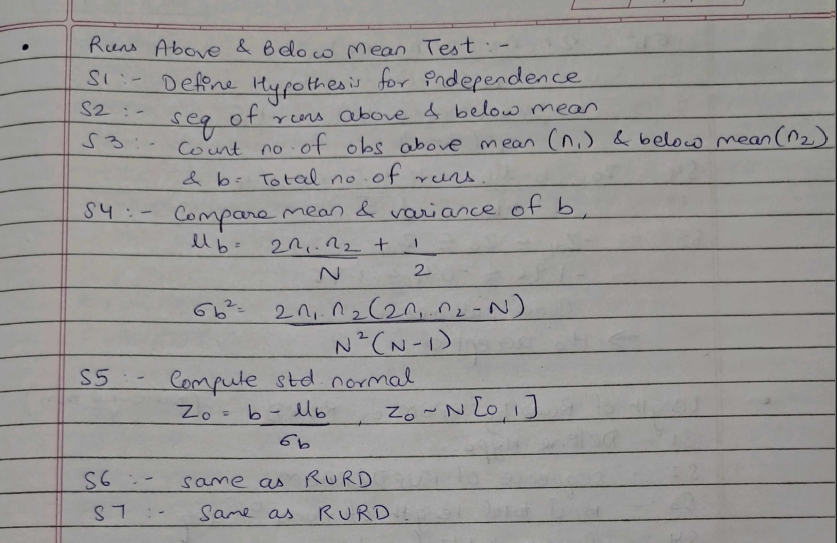 • Runs Above & Below Mean Test :-
S1 :- Define Hypothesis for independence
S2 :- seq of runs above & below mean
S3 :- Count no. of obs above mean (n₁) & below mean (n₂)
& b = Total no. of runs.
S4 :- Compare mean & variance of b,
μb = 2n₁.n₂/N + 1/2
σb² = 2n₁.n₂(2n₁.n₂-N)/N²(N-1)
S5 :- Compute std. normal
Z₀ = b - μb/σb , Z₀ ~ N[0,1]
S6 :- same as RURD
S7 :- Same as RURD.